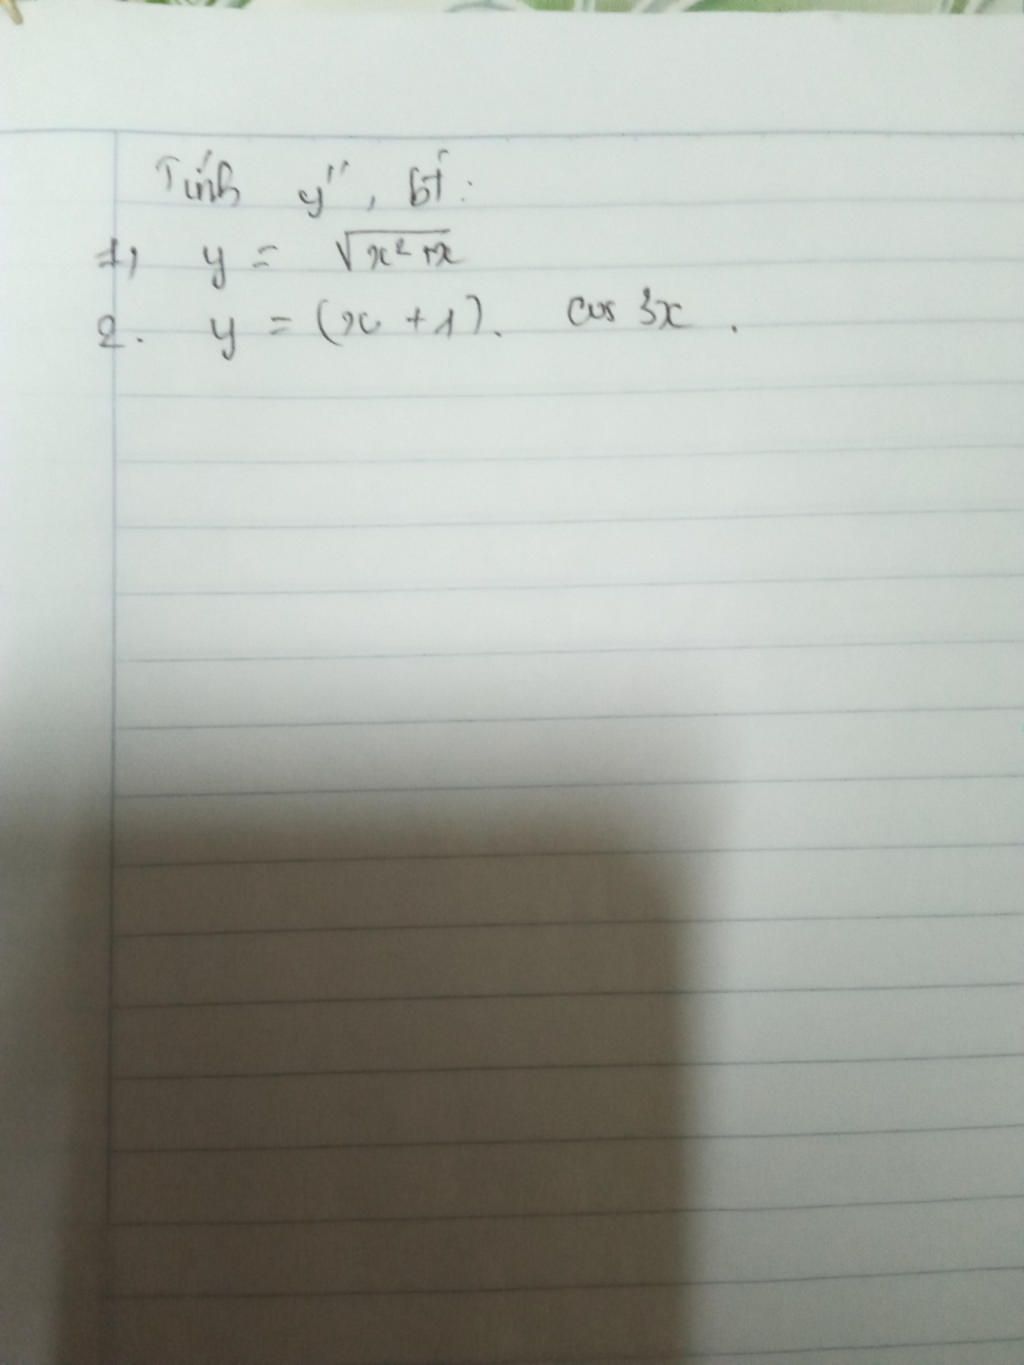 Tính y'', bt:
1, y = √x² + x
2. y = (x + 1). cos 3x.